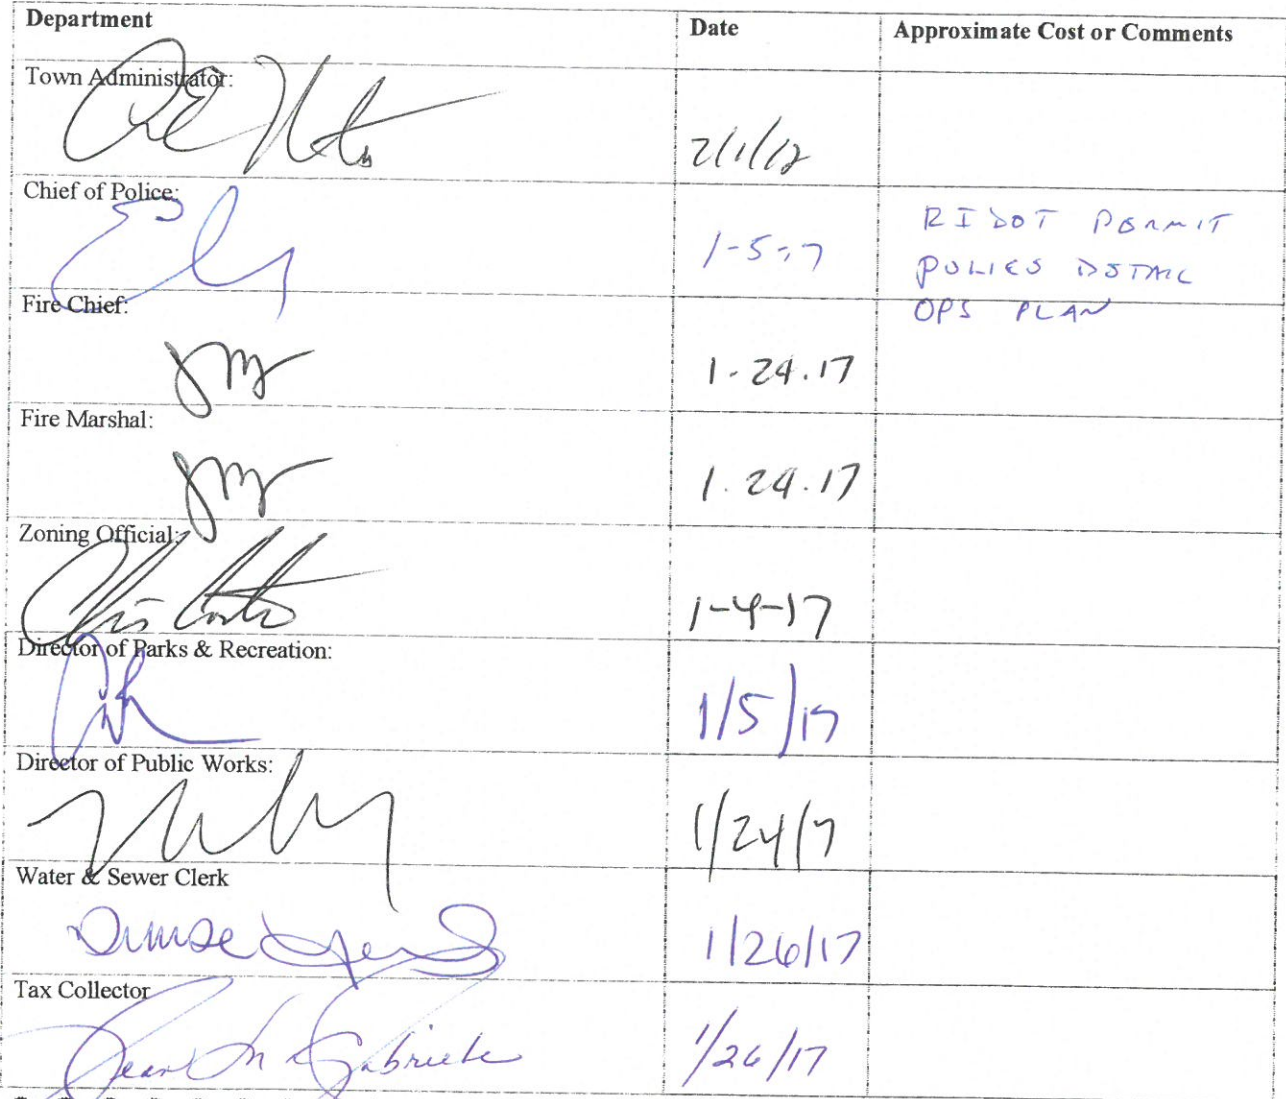 Department Date Approximate Cost or Comments
Town Administrator:
2/1/12
Chief of Police:
1-5-17
RIDOT PERMIT
POLICE DETAIL
OPS PLAN
Fire Chief:
1-24.17
Fire Marshal:
1.24.17
Zoning Official:
1-4-17
Director of Parks & Recreation:
1/5/17
Director of Public Works:
1/24/17
Water & Sewer Clerk
Denise
1/26/17
Tax Collector
Jean M Gabriele
1/26/17